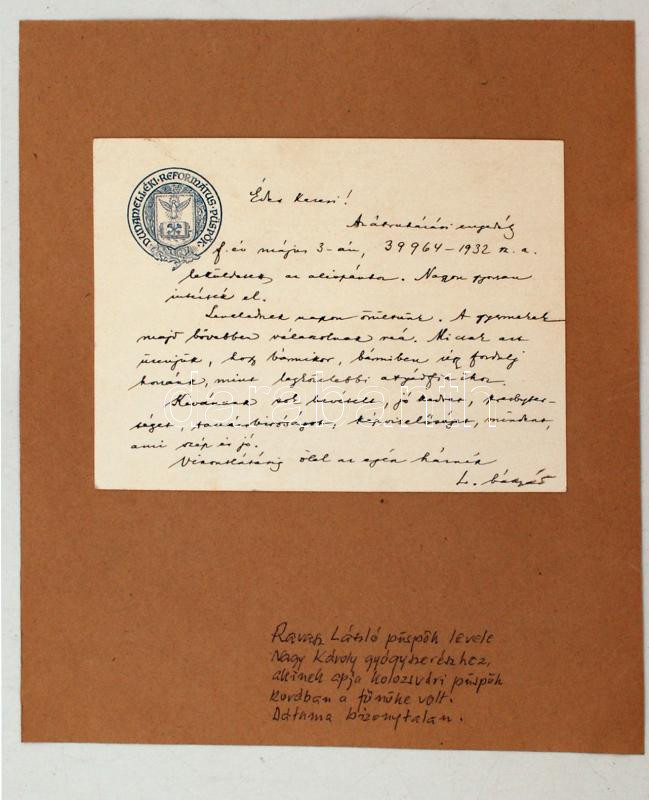 DUNAMELLÉKI · REFORMÁTUS · PÜSPÖK ·
Édes Karcsi!
Az átruházási engedély
f. év május 3-án, 39964-1932 sz. a.
leküldetett az alispánhoz. Nagyon gyorsan
intézték el.
Leveleden nagyon örültünk. A gyermekek
majd bővebben válaszolnak reá. Mi csak azt
üzenjük, hogy bármikor, bármiben úgy fordulj
hozzánk, mint legközelebbi atyádfiaihoz.
Kívánunk sok bevételt, jó kedvet, presbyter-
séget, tanácsbíróságot, képviselőséget, mindent,
ami szép és jó.
Viszontlátásig ölel az egész háznép
L. bátyád
darabanth
Ravasz László püspök levele
Nagy Károly gyógyszerészhez,
akinek apja kolozsvári püspök
korában a főnöke volt.
Dátuma bizonytalan.